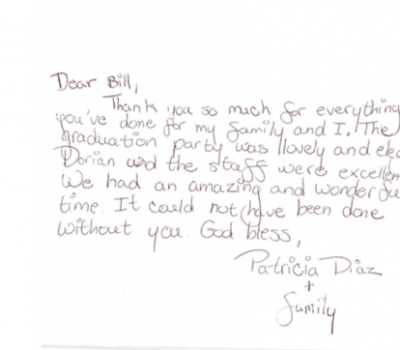 Dear Bill,
Thank you so much for everything
you've done for my family and I. The
graduation party was lovely and ele
Dorian and the staff were excellen
We had an amazing and wonderfu
time. It could not have been done
without you. God bless,
Patricia Diaz
+
family